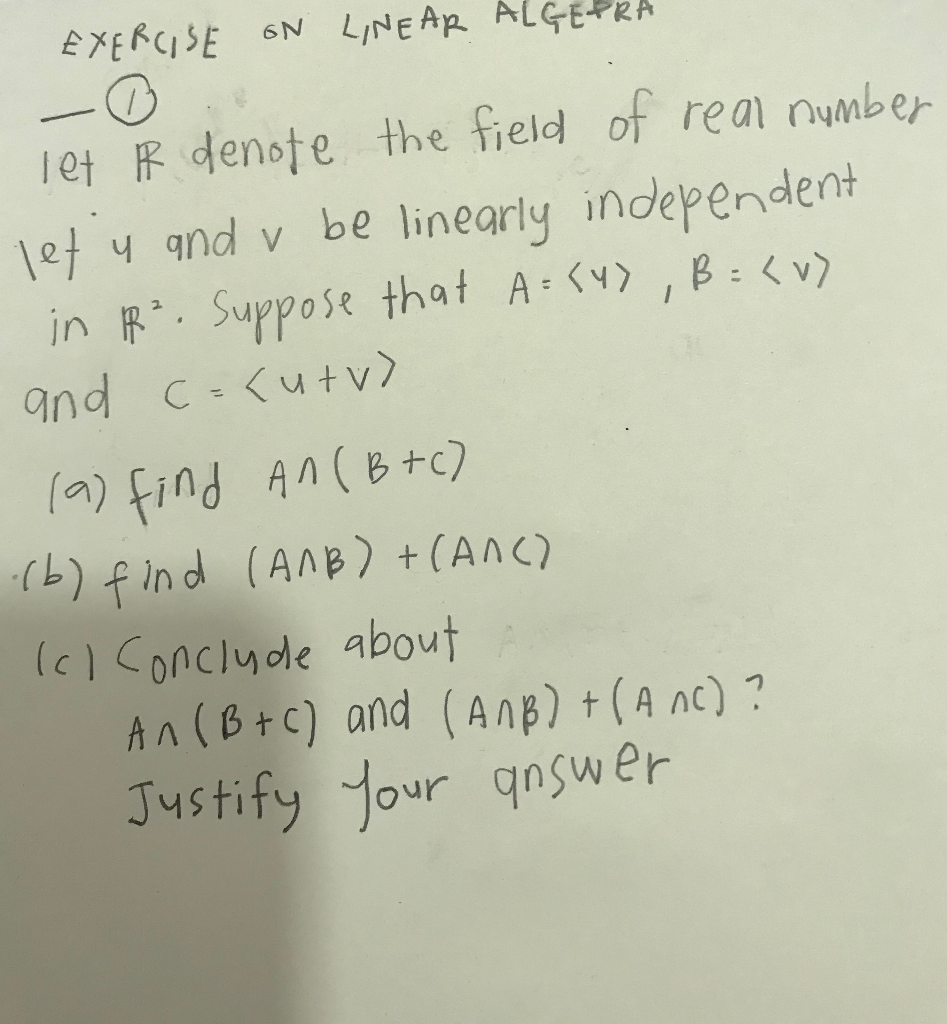 EXERCISE ON LINEAR ALGEBRA
— ①
let ℝ denote the field of real number
let u and v be linearly independent
in ℝ². Suppose that A = <u> , B = <v>
and C = <u+v>
(a) find A∩(B+C)
(b) find (A∩B) + (A∩C)
(c) Conclude about
A∩(B+C) and (A∩B) + (A∩C) ?
Justify your answer